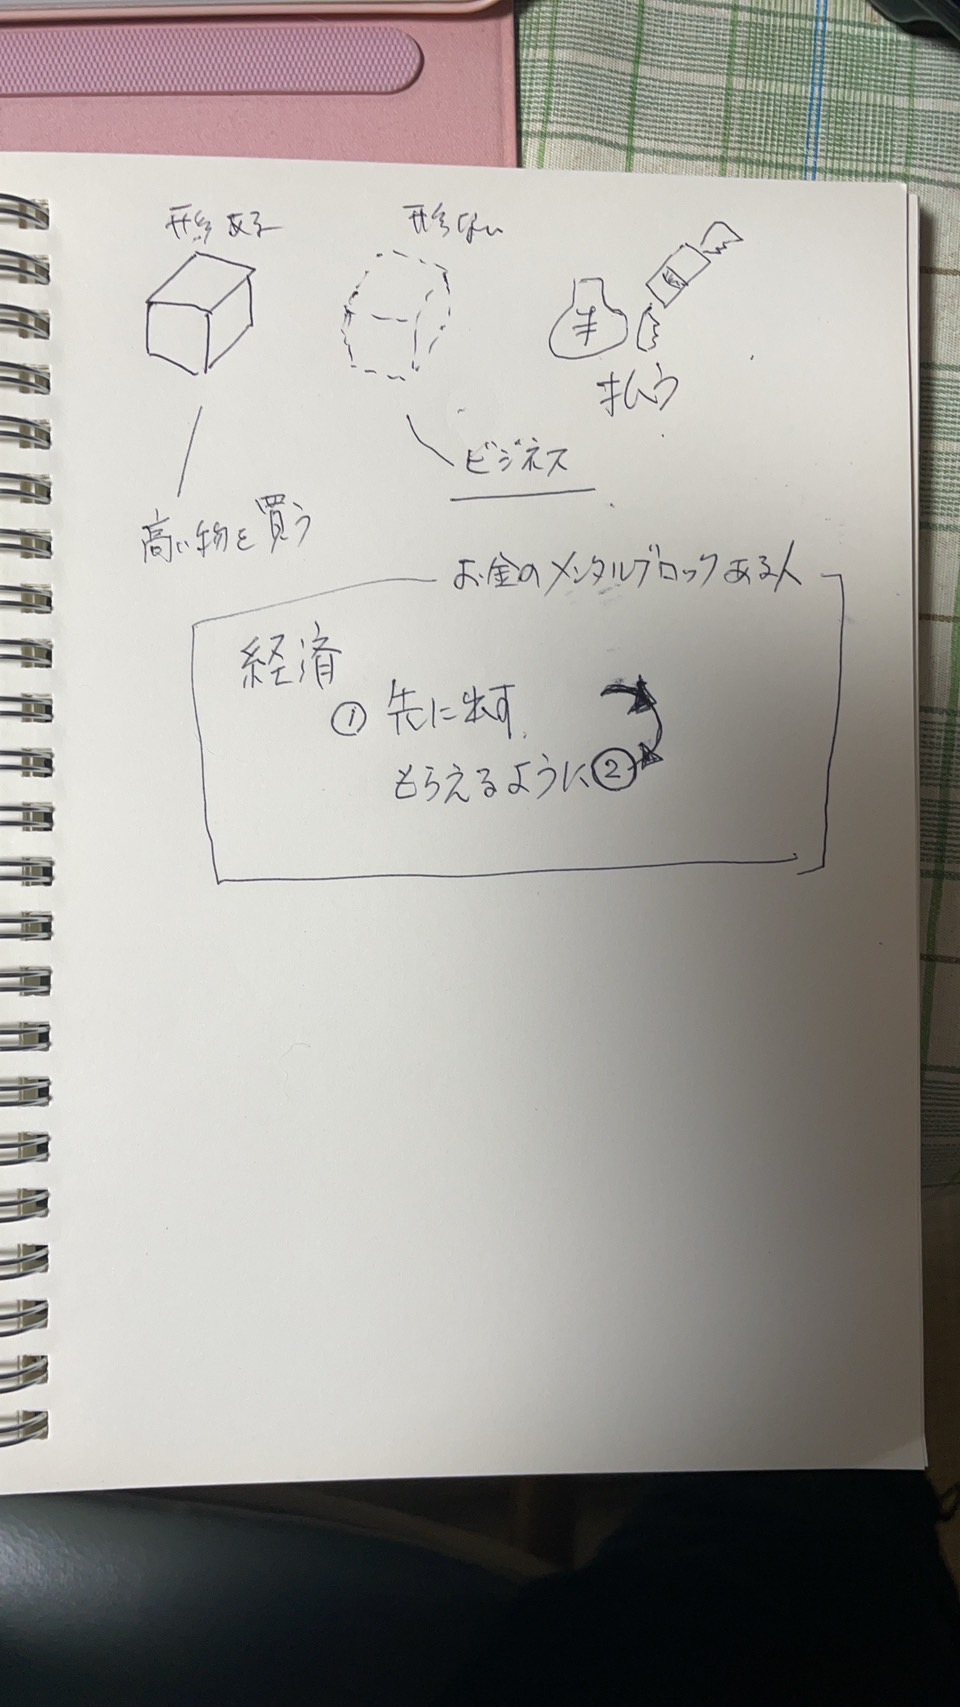 形ある
形ない
¥
払う
ビジネス
高い物を買う
お金のメンタルブロックある人
経済
① 先に出す
もらえるように②